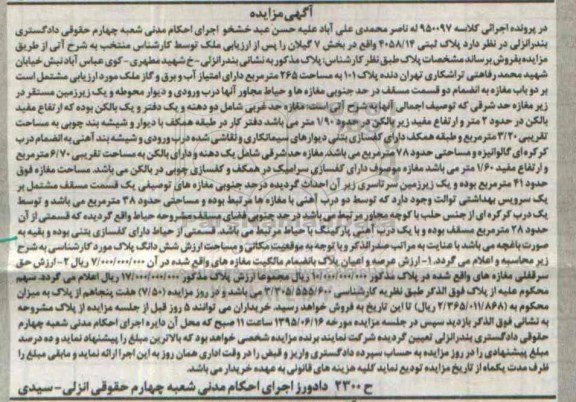 آگهی مزایده
در پرونده اجرائی کلاسه ۹۵۰۰۹۷ له ناصر محمدی علی آباد علیه حسن عبد خشخو اجرای احکام مدنی شعبه چهارم حقوقی دادگستری
بندرانزلی در نظر دارد پلاک ثبتی ۴۰۵۸/۱۴ واقع در بخش ۷ گیلان را پس از ارزیابی ملک توسط کارشناس منتخب به شرح آتی از طریق
مزایده بفروش برساند مشخصات پلاک طبق نظر کارشناس: پلاک مذکور به نشانی بندرانزلی - خ شهید مطهری - کوی عباس آباد نبش خیابان
شهید محمد رفاهتی تراشکاری تهران دنده پلاک ۱۰۱ به مساحت ۲۶۵ مترمربع دارای امتیاز آب و برق و گاز ملک مورد ارزیابی مشتمل است
بر دو باب مغازه به انضمام دو قسمت مسقف در حد جنوبی مغازه ها و حیاط مجاور آنها درب ورودی و دیوار محوطه و یک زیرزمین مستقر در
زیر مغازه حد شرقی که توصیف اجمالی آنها به شرح آتی است: مغازه حد غربی شامل دو دهنه و یک دفتر و یک بالکن بوده که ارتفاع مفید
بالکن در حدود ۲ متر و ارتفاع مفید زیر بالکن در حدود ۱/۹۰ متر می باشد دفتر کار در طبقه همکف با دیوار و شیشه بند چوبی به مساحت
تقریبی ۳/۲۰ مترمربع و طبقه همکف دارای کفسازی بتنی دیوارهای سیمانکاری و نقاشی شده درب ورودی و شیشه بند آهنی به انضمام درب
کرکره ای گالوانیزه و مساحتی حدود ۷۸ مترمربع می باشد. مغازه حد شرقی شامل یک دهنه و دارای بالکن به مساحت تقریبی ۶/۷۰ مترمربع
و ارتفاع مفید ۱/۶۰ متر می باشد مغازه موصوف دارای کفسازی سرامیک در همکف و کفسازی چوبی در بالکن می باشد. مساحت مغازه فوق
حدود ۴۱ مترمربع بوده و یک زیرزمین سرتاسری زیر آن احداث گردیده درحد جنوبی مغازه های توصیفی یک قسمت مسقف مشتمل بر
یک سرویس بهداشتی توالت وجود دارد که توسط دو درب آهنی با مغازه ها مرتبط بوده و مساحتی حدود ۳۸ مترمربع می باشد و توسط
یک درب کرکره ای از جنس حلب با کوچه مجاور مرتبط می باشد در حد جنوبی فضای مسقف مشروحه حیاط واقع گردیده که قسمتی از آن
حدود ۲۸ مترمربع مسقف بوده و با یک درب آهنی پارکینگ با حیاط مرتبط می باشد. قسمتی از حیاط دارای کفسازی بتنی بوده و بقیه به
صورت باغچه می باشد با عنایت به مراتب صدرالذکر و با توجه به موقعیت مکانی و مساحت ارزش شش دانگ پلاک مورد کارشناسی به شرح
زیر محاسبه و اعلام می گردد. ۱- ارزش عرصه و اعیان پلاک بانضمام مالکیت مغازه های واقع شده در آن ۷/۰۰۰/۰۰۰/۰۰۰ ریال ۲- ارزش حق
سرقفلی مغازه های واقع شده در پلاک مذکور ۱۰/۰۰۰/۰۰۰/۰۰۰ ریال مجموعا ارزش پلاک مذکور ۱۷/۰۰۰/۰۰۰/۰۰۰ ریال اعلام می گردد. سهم
محکوم علیه از پلاک فوق الذکر طبق نظریه کارشناسی ۳/۳۰۵/۵۵۵/۶۰۰ می باشد و در روز مزایده (۷/۵۰) هفت پنجاهم از پلاک به میزان
محکوم به (۲/۳۶۵/۰۱۱/۸۶۸ ریال) تا این تاریخ به فروش خواهد رسید. خریداران می توانند ۵ روز قبل از جلسه مزایده از پلاک مشروحه
به نشانی فوق الذکر بازدید سپس در جلسه مزایده مورخه ۱۳۹۵/۰۶/۱۶ ساعت ۱۱ صبح که محل آن دایره اجرای احکام مدنی شعبه چهارم
حقوقی دادگستری بندرانزلی تعیین گردیده شرکت نمایند برنده مزایده شخصی خواهد بود که بالاترین مبلغ را پیشنهاد نماید و ده درصد
مبلغ پیشنهادی را در روز مزایده به حساب سپرده دادگستری واریز و قبض را در وقت اداری همان روز به این اجرا ارائه نماید و مابقی مبلغ را
ظرف مدت یکماه از تاریخ مزایده تودیع نماید کلیه هزینه های قانونی به عهده خریدار می باشد.
ح ۲۳۰۰ دادورز اجرای احکام مدنی شعبه چهارم حقوقی انزلی - سیدی